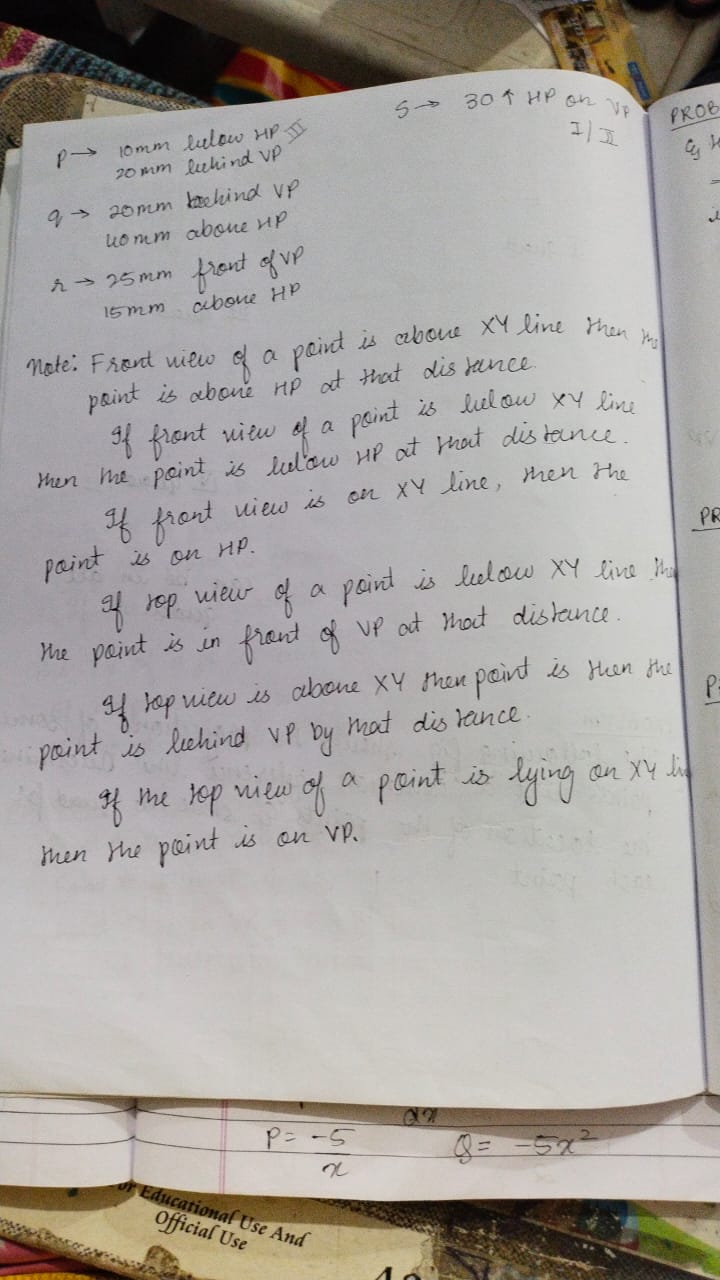 S → 30 ↑ HP on VP
I/II
P → 10mm below HP III
20mm behind VP
q → 20mm behind VP
40mm above HP
r → 25mm front of VP
15mm above HP
Note: Front view of a point is above XY line then the
point is above HP at that distance.
If front view of a point is below XY line
then the point is below HP at that distance.
If front view is on XY line, then the
point is on HP.
If top view of a point is below XY line the
the point is in front of VP at that distance.
If top view is above XY then point is then the
point is behind VP by that distance.
If the top view of a point is lying on XY li
then the point is on VP.
PROB
PR
P = -5/x
Q = -5x²
or Educational Use And
Official Use